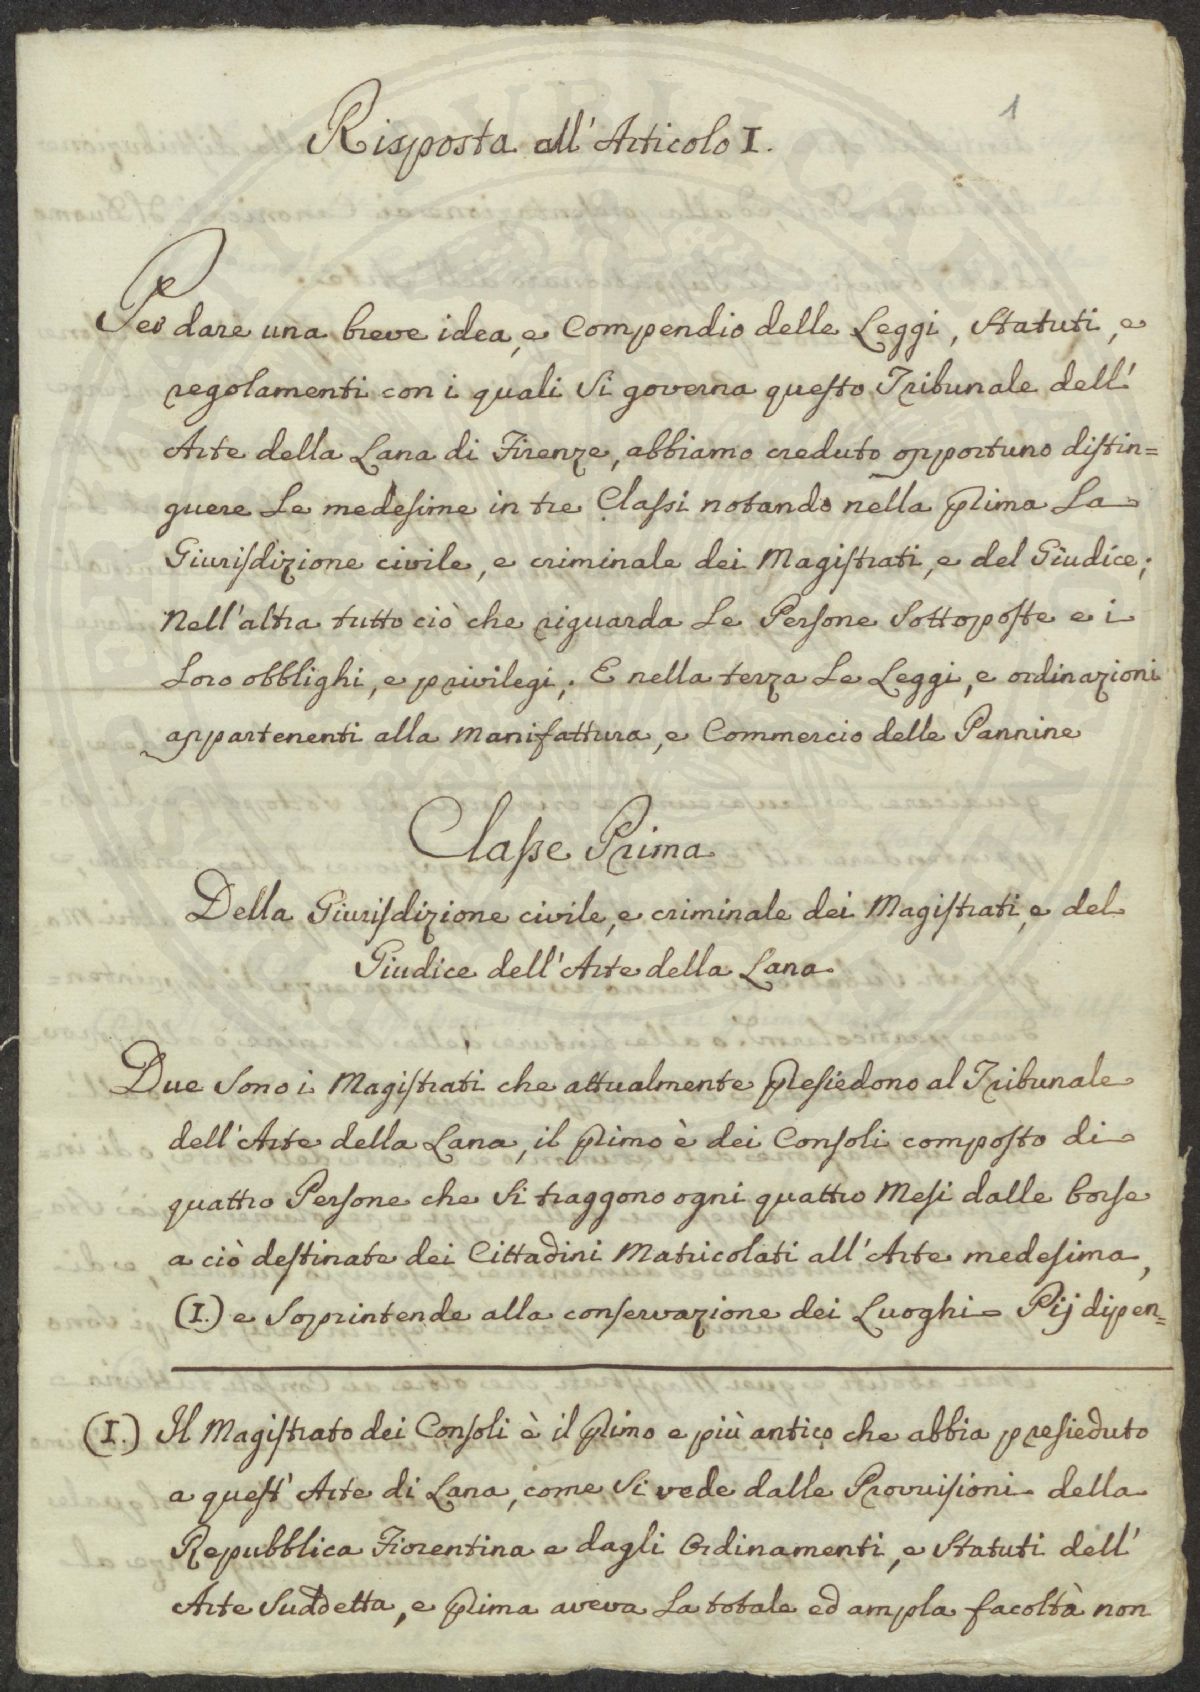 1
Risposta all' Articolo I.
Per dare una breve idea, e Compendio delle Leggi, Statuti, e
regolamenti con i quali si governa questo Tribunale dell'
Arte della Lana di Firenze, abbiamo creduto opportuno distin=
guere Le medesime in tre Classi notando nella prima La
Giurisdizione civile, e criminale dei Magistrati, e del Giudice;
Nell'altra tutto ciò che riguarda Le Persone Sottoposte e i
Loro obblighi, e privilegi; E nella terza Le Leggi, e ordinazioni
appartenenti alla Manifattura, e Commercio delle Pannine
Classe Prima
Della Giurisdizione civile, e criminale dei Magistrati, e del
Giudice dell'Arte della Lana
Due Sono i Magistrati che attualmente presiedono al Tribunale
dell'Arte della Lana, il primo è dei Consoli composto di
quattro Persone che Si traggono ogni quattro Mesi dalle borse
a ciò destinate dei Cittadini Matricolati all'Arte medesima,
(I.) e Soprintende alla conservazione dei Luoghi Pij dipen=
(I.) Il Magistrato dei Consoli è il primo e più antico che abbia presieduto
a quest' Arte di Lana, come Si vede dalle Provvisioni della
Repubblica Fiorentina e dagli Ordinamenti, e Statuti dell'
Arte Suddetta, e prima aveva La totale ed ampla facoltà non